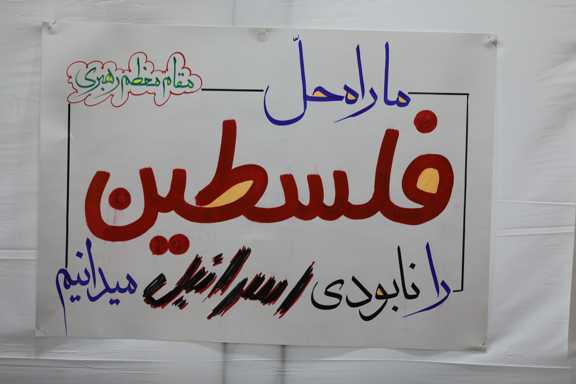 مقام معظم رهبری
ما راه حلّ
فلسطین
را نابودی اسرائیل میدانیم